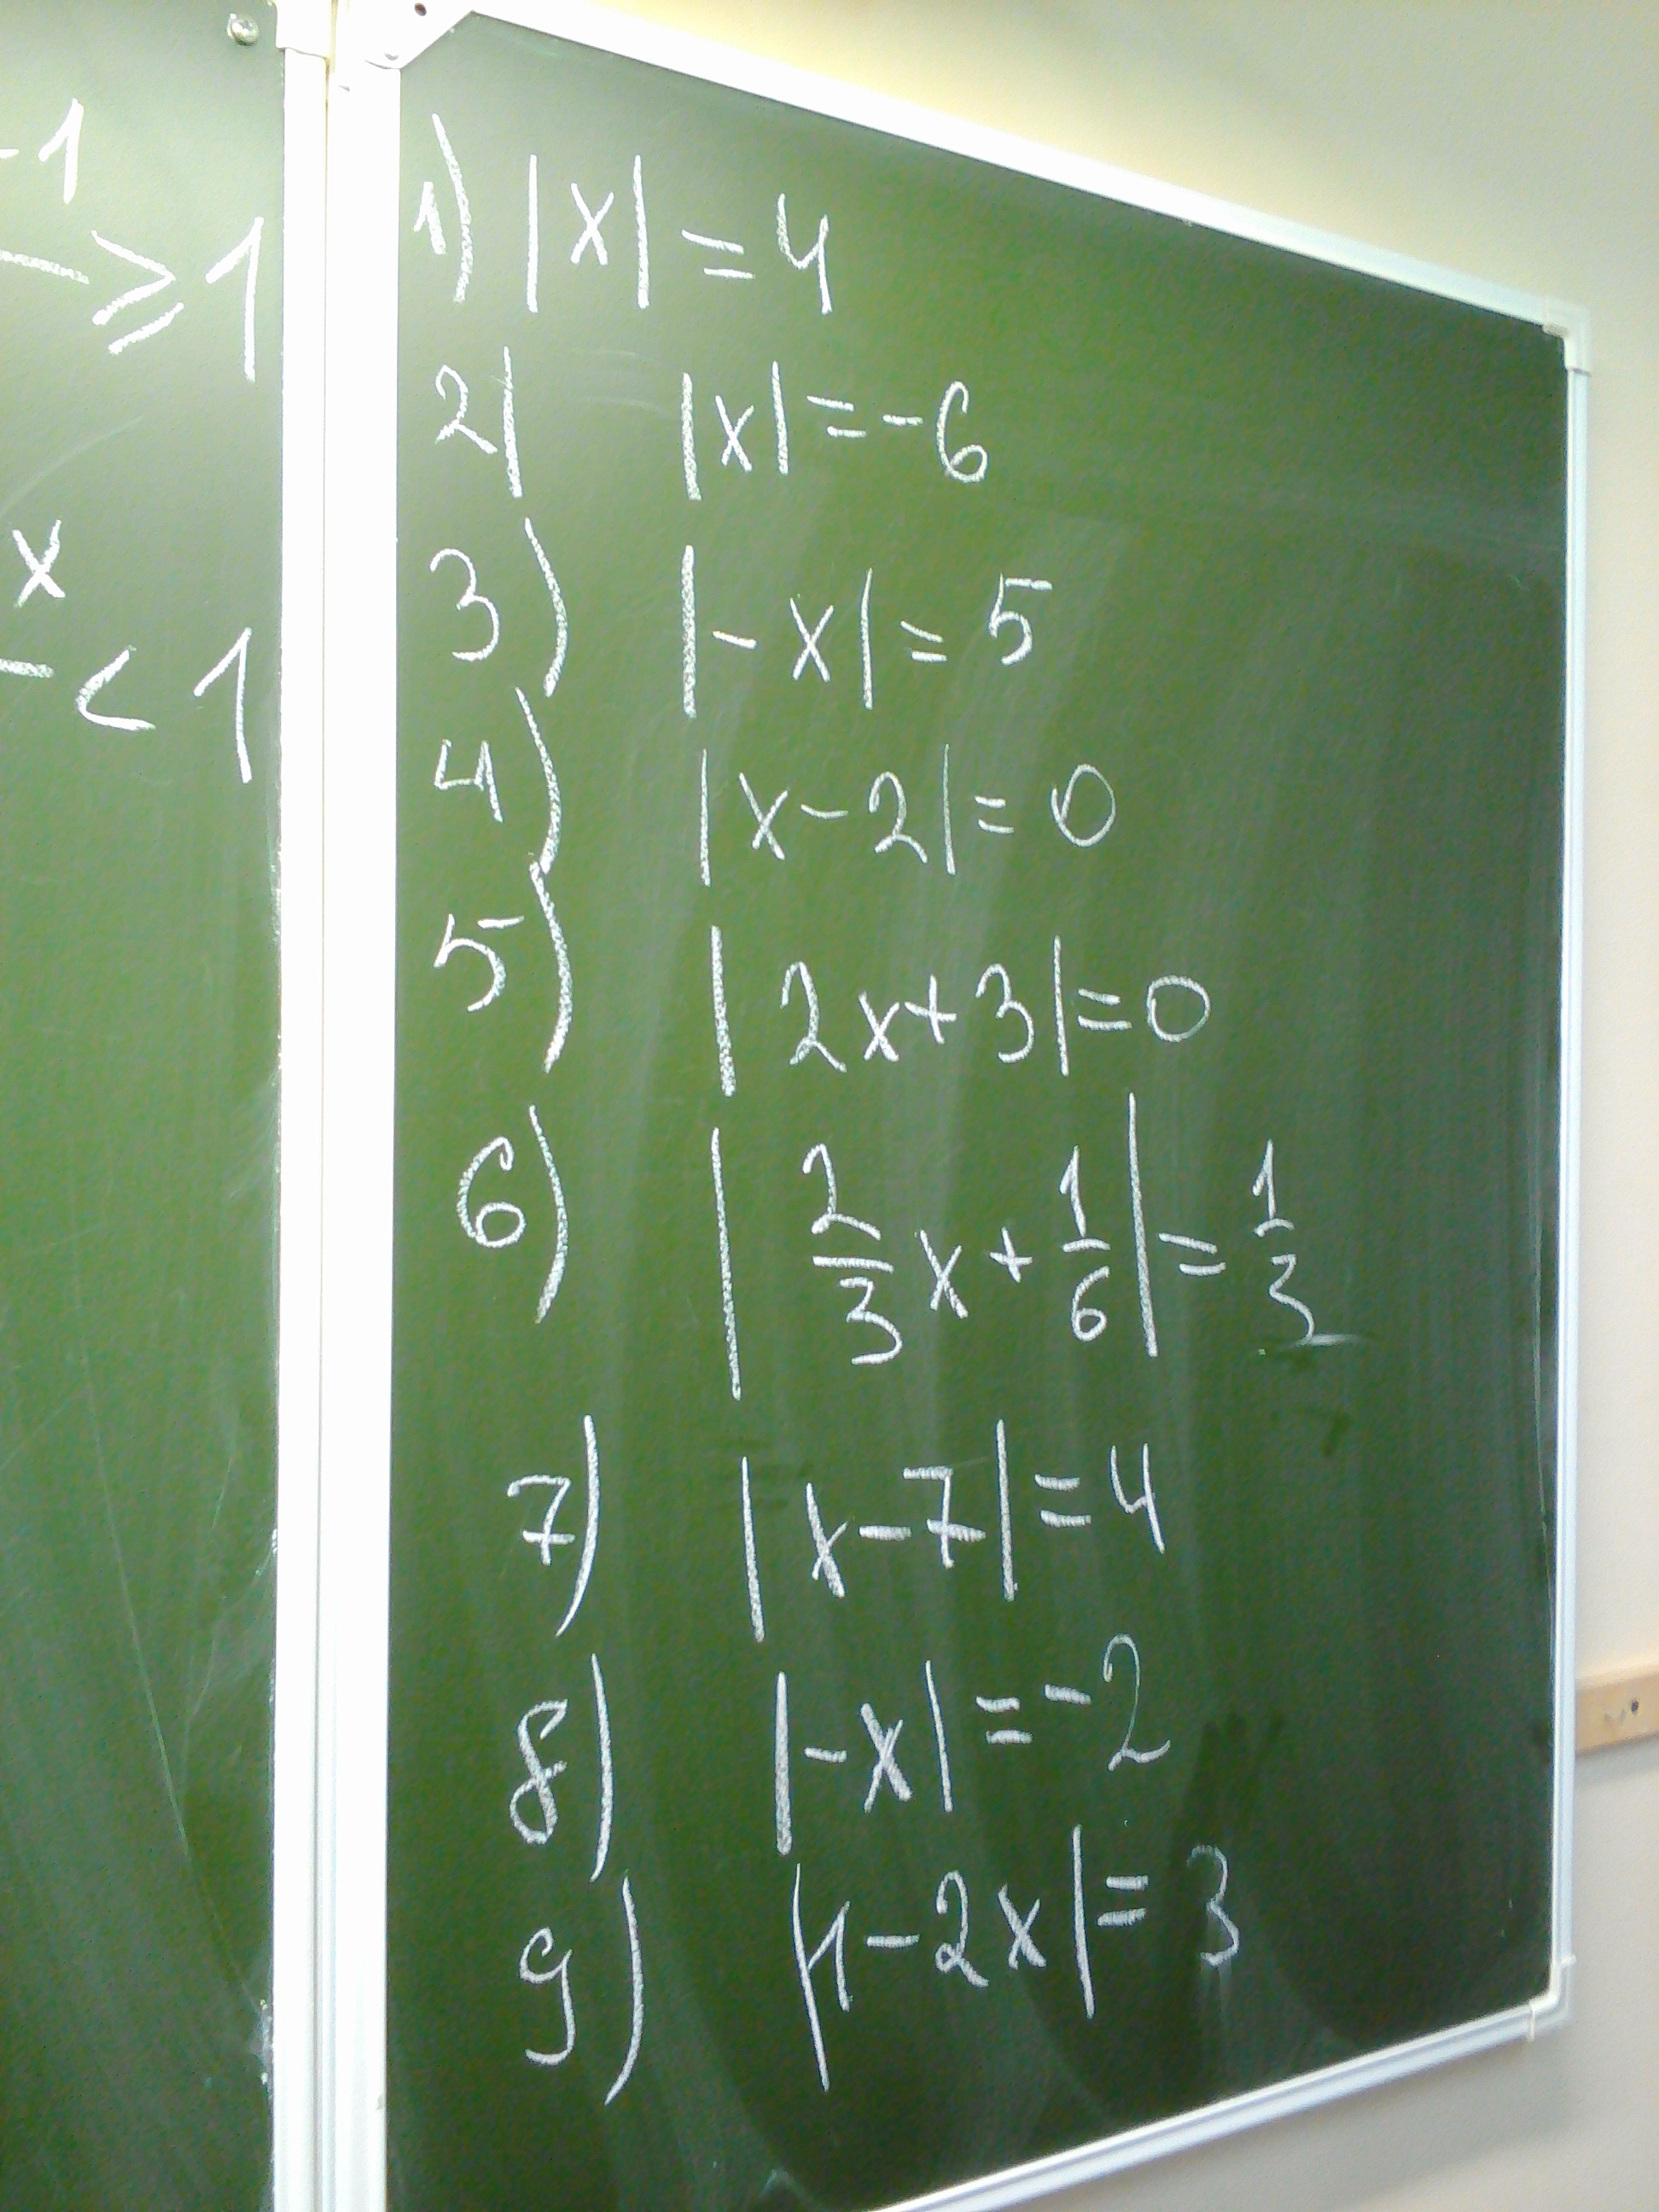 -1
≥ 1
x
< 1
1) |x| = 4
2) |x| = -6
3) |-x| = 5
4) |x-2| = 0
5) |2x+3| = 0
6) |2/3 x + 1/6| = 1/3
7) |x-7| = 4
8) |-x| = -2
9) |1-2x| = 3